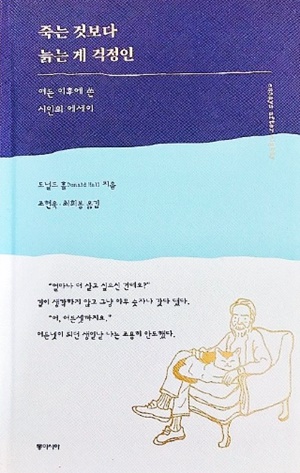 죽는 것보다
늙는 게 걱정인
여든 이후에 쓴
시인의 에세이
essays after eighty
도널드 홀Donald Hall 지음
조현욱·최희봉 옮김
"얼마나 더 살고 싶으신 건데요?"
깊이 생각하지 않고 그냥 아무 숫자나 갖다 댔다.
"어, 여든셋까지요."
여든넷이 되던 생일날 나는 조용히 안도했다.
동아시아